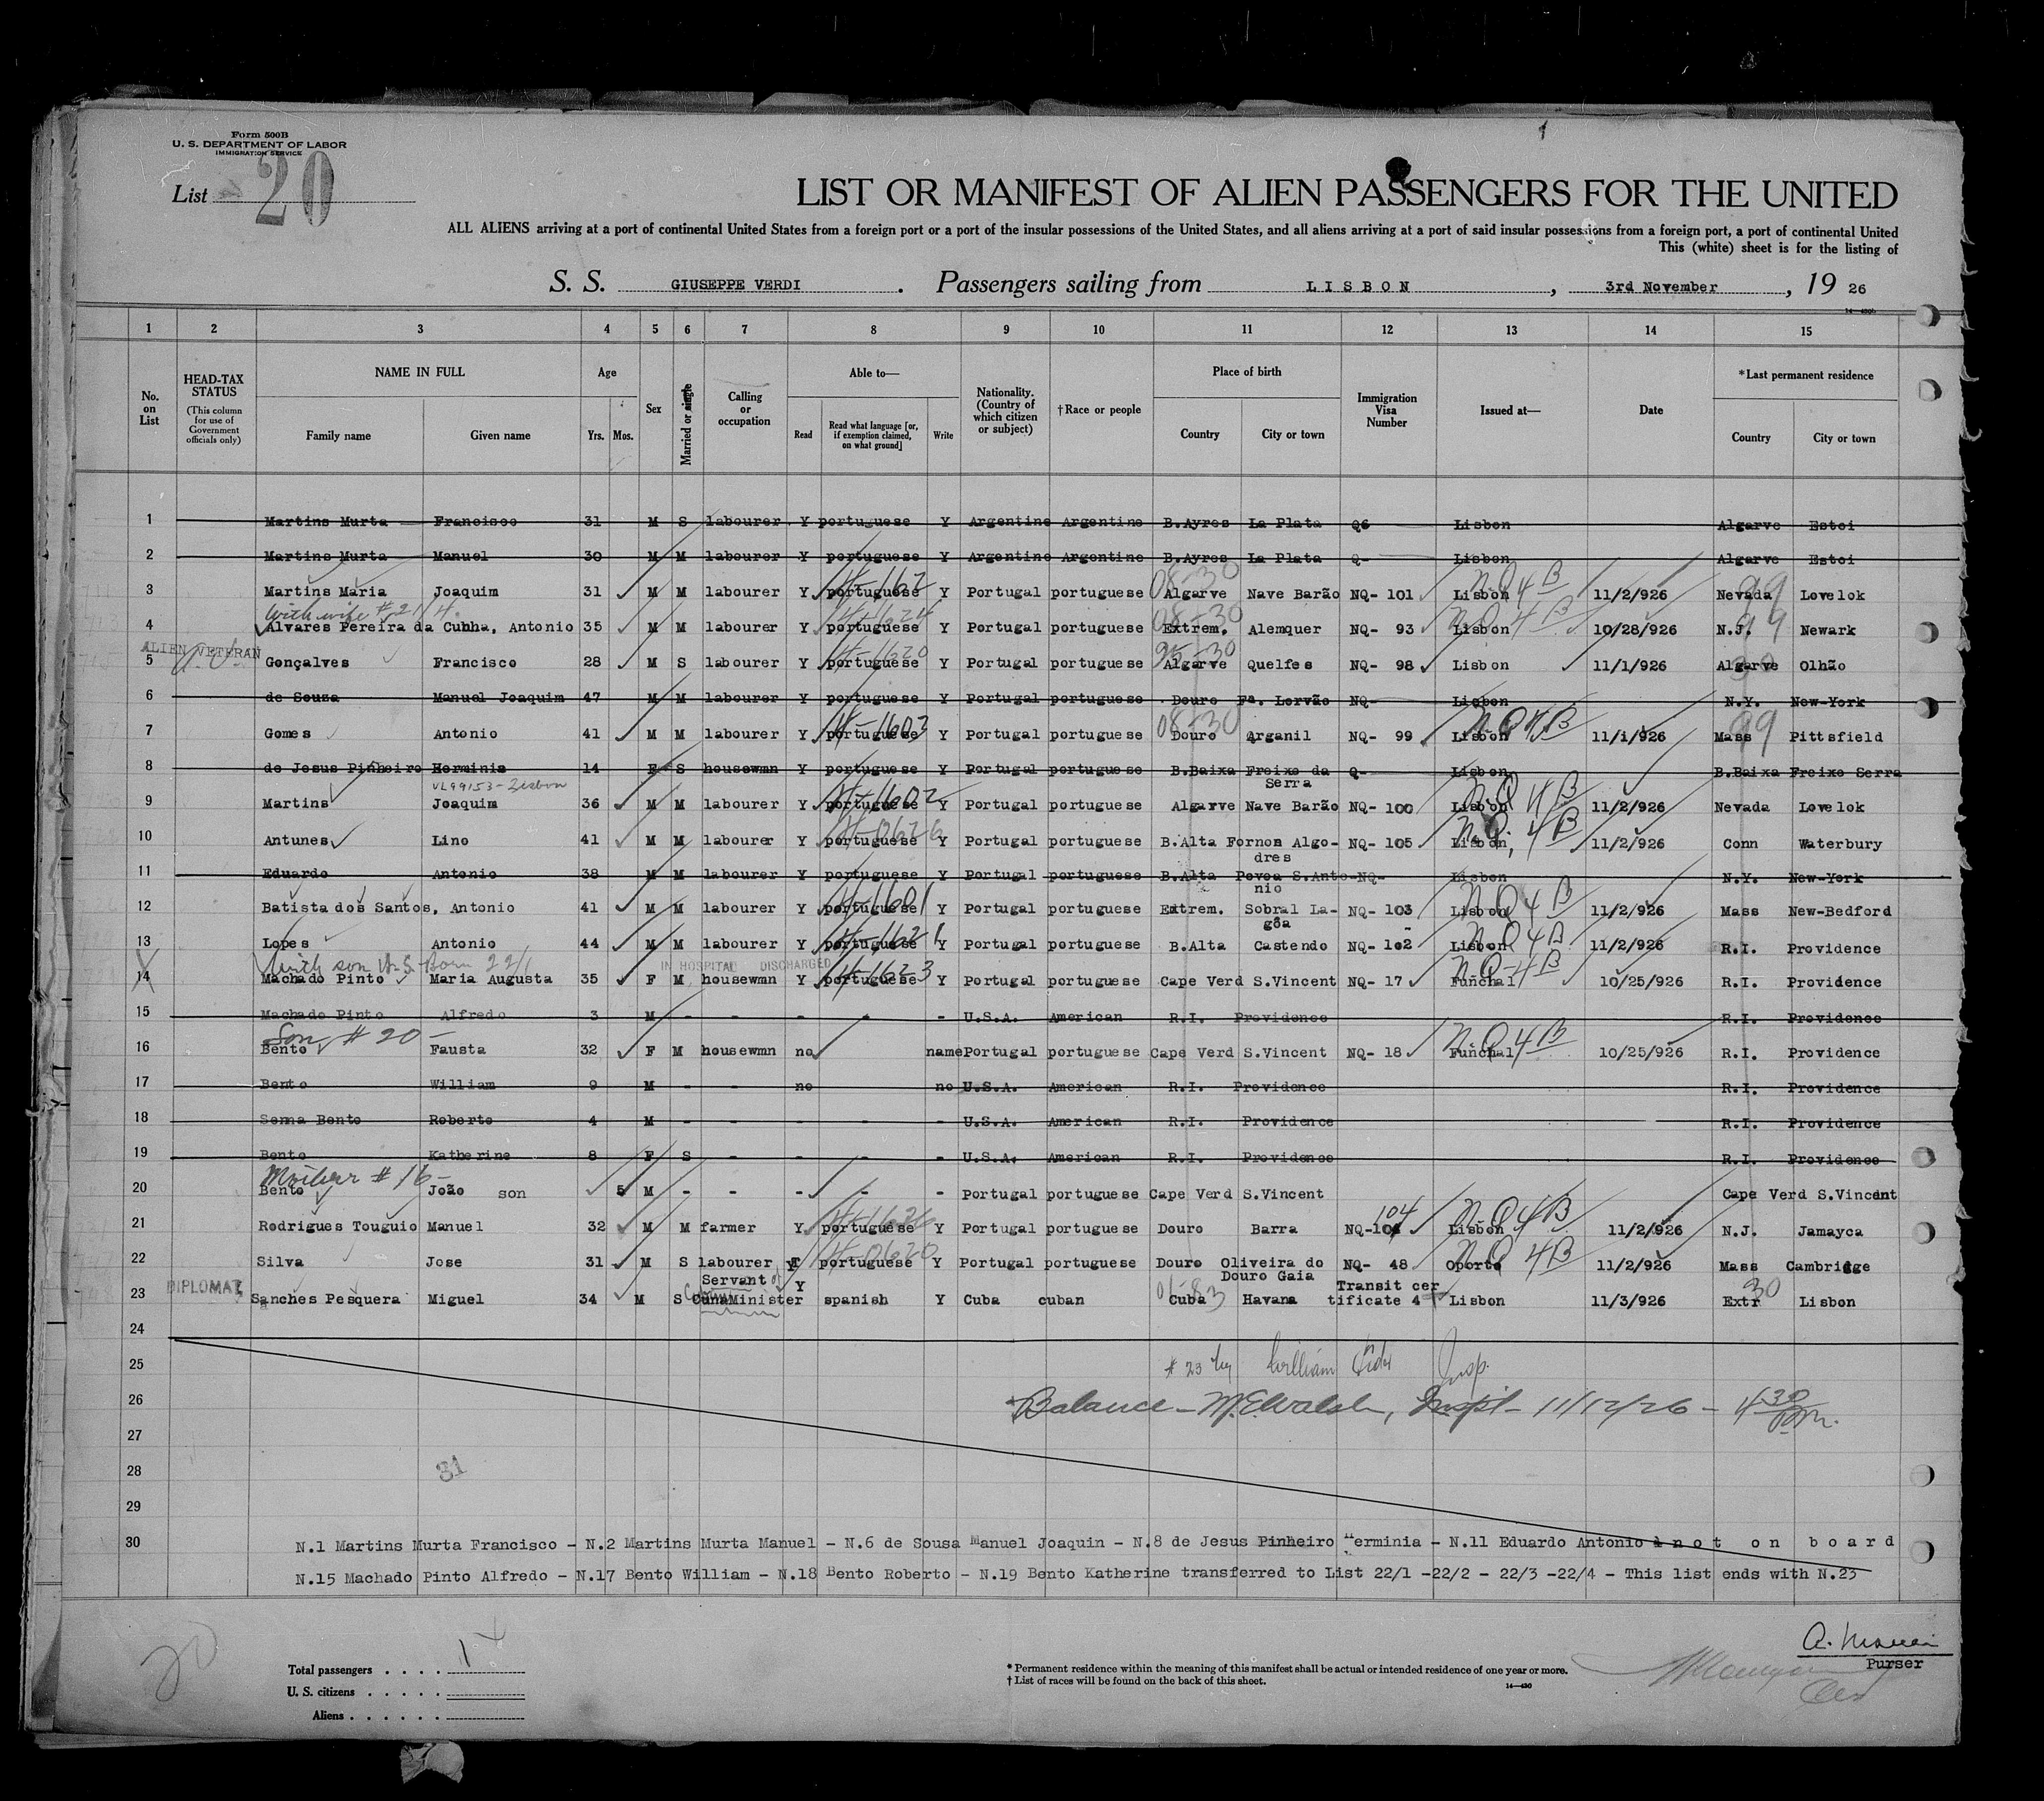 Form 500B
U. S. DEPARTMENT OF LABOR
IMMIGRATION SERVICE
List 20
LIST OR MANIFEST OF ALIEN PASSENGERS FOR THE UNITED
ALL ALIENS arriving at a port of continental United States from a foreign port or a port of the insular possessions of the United States, and all aliens arriving at a port of said insular possessions from a foreign port, a port of continental United
This (white) sheet is for the listing of
S. S. GIUSEPPE VERDI. Passengers sailing from LISBON, 3rd November, 19 26
1 2 3 4 5 6 7 8 9 10 11 12 13 14 15
No. on List
HEAD-TAX STATUS (This column for use of Government officials only)
NAME IN FULL Family name Given name
Age Yrs. Mos.
Sex
Married or single
Calling or occupation
Able to— Read Read what language [or, if exemption claimed, on what ground] Write
Nationality. (Country of which citizen or subject)
†Race or people
Place of birth Country City or town
Immigration Visa Number
Issued at—
Date
*Last permanent residence Country City or town
1 Martins Murta Francisco 31 M S labourer Y portuguese Y Argentine Argentine B.Ayres La Plata Q6 Lisbon Algarve Estoi
2 Martins Murta Manuel 30 M M labourer Y portuguese Y Argentine Argentine B.Ayres La Plata Q- Lisbon Algarve Estoi
3 Martins Maria Joaquim 31 M M labourer Y portuguese Y Portugal portuguese Algarve Nave Barão NQ- 101 Lisbon 11/2/926 Nevada Lovelok
With wife # 21/4.
4 Alvares Pereira da Cunha, Antonio 35 M M labourer Y portuguese Y Portugal portuguese Extrem. Alemquer NQ- 93 Lisbon 10/28/926 N.J. Newark
ALIEN VETERAN
5 Gonçalves Francisco 28 M S labourer Y portuguese Y Portugal portuguese Algarve Quelfes NQ- 98 Lisbon 11/1/926 Algarve Olhão
6 de Sousa Manuel Joaquim 47 M M labourer Y portuguese Y Portugal portuguese Douro Fª. Lorvão NQ- Lisbon N.Y. New-York
7 Gomes Antonio 41 M M labourer Y portuguese Y Portugal portuguese Douro Arganil NQ- 99 Lisbon 11/1/926 Mass Pittsfield
8 de Jesus Pinheiro Herminia 14 F S housewmn Y portuguese Y Portugal portuguese B.Baixa Freixo da Serra Q- Lisbon B.Baixa Freixo Serra
VL99153 - Lisbon
9 Martins Joaquim 36 M M labourer Y portuguese Y Portugal portuguese Algarve Nave Barão NQ- 100 Lisbon 11/2/926 Nevada Lovelok
10 Antunes Lino 41 M M labourer Y portuguese Y Portugal portuguese B.Alta Fornos Algodres NQ- 105 Lisbon, 11/2/926 Conn Waterbury
11 Eduardo Antonio 38 M M labourer Y portuguese Y Portugal portuguese B.Alta Povoa S.Antonio NQ- Lisbon N.Y. New-York
12 Batista dos Santos, Antonio 41 M M labourer Y portuguese Y Portugal portuguese Extrem. Sobral Lagôa NQ- 103 Lisbon 11/2/926 Mass New-Bedford
13 Lopes Antonio 44 M M labourer Y portuguese Y Portugal portuguese B.Alta Castendo NQ- 102 Lisbon 11/2/926 R.I. Providence
with son U.S. born 22/1 IN HOSPITAL DISCHARGED
14 Machado Pinto Maria Augusta 35 F M housewmn Y portuguese Y Portugal portuguese Cape Verd S.Vincent NQ- 17 Funchal 10/25/926 R.I. Providence
15 Machado Pinto Alfredo 3 M - - - - - U.S.A. American R.I. Providence R.I. Providence
Son # 20 -
16 Bento Fausta 32 F M housewmn no name Portugal portuguese Cape Verd S.Vincent NQ- 18 Funchal 10/25/926 R.I. Providence
17 Bento William 9 M - - no no U.S.A. American R.I. Providence R.I. Providence
18 Senna Bento Roberto 4 M - - - - - U.S.A. American R.I. Providence R.I. Providence
19 Bento Katherine 8 F S - - - - U.S.A. American R.I. Providence R.I. Providence
Mother # 16 -
20 Bento João son 5 M - - - - - Portugal portuguese Cape Verd S.Vincent Cape Verd S.Vincent
21 Rodrigues Touguio Manuel 32 M M farmer Y portuguese Y Portugal portuguese Douro Barra NQ- 104 Lisbon 11/2/926 N.J. Jamayca
22 Silva Jose 31 M S labourer Y portuguese Y Portugal portuguese Douro Oliveira do Douro Gaia NQ- 48 Oporto 11/2/926 Mass Cambridge
DIPLOMAT
23 Sanches Pesquera Miguel 34 M S Servant of Cuna Minister Y spanish Y Cuba cuban Cuba Havana Transit certificate 4 Lisbon 11/3/926 Extr Lisbon
24
25 # 23 by William Insp.
26 Balance - M.E. Walsh, Inspt - 11/12/26 - 4 30 pm.
27
28 31
29
30
N.1 Martins Murta Francisco - N.2 Martins Murta Manuel - N.6 de Sousa Manuel Joaquin - N.8 de Jesus Pinheiro Herminia - N.11 Eduardo Antonio not on board
N.15 Machado Pinto Alfredo - N.17 Bento William - N.18 Bento Roberto - N.19 Bento Katherine transferred to List 22/1 -22/2 - 22/3 -22/4 - This list ends with N.23
20
Total passengers . . . .
U. S. citizens . . . . .
Aliens . . . . . .
* Permanent residence within the meaning of this manifest shall be actual or intended residence of one year or more.
† List of races will be found on the back of this sheet.
Purser